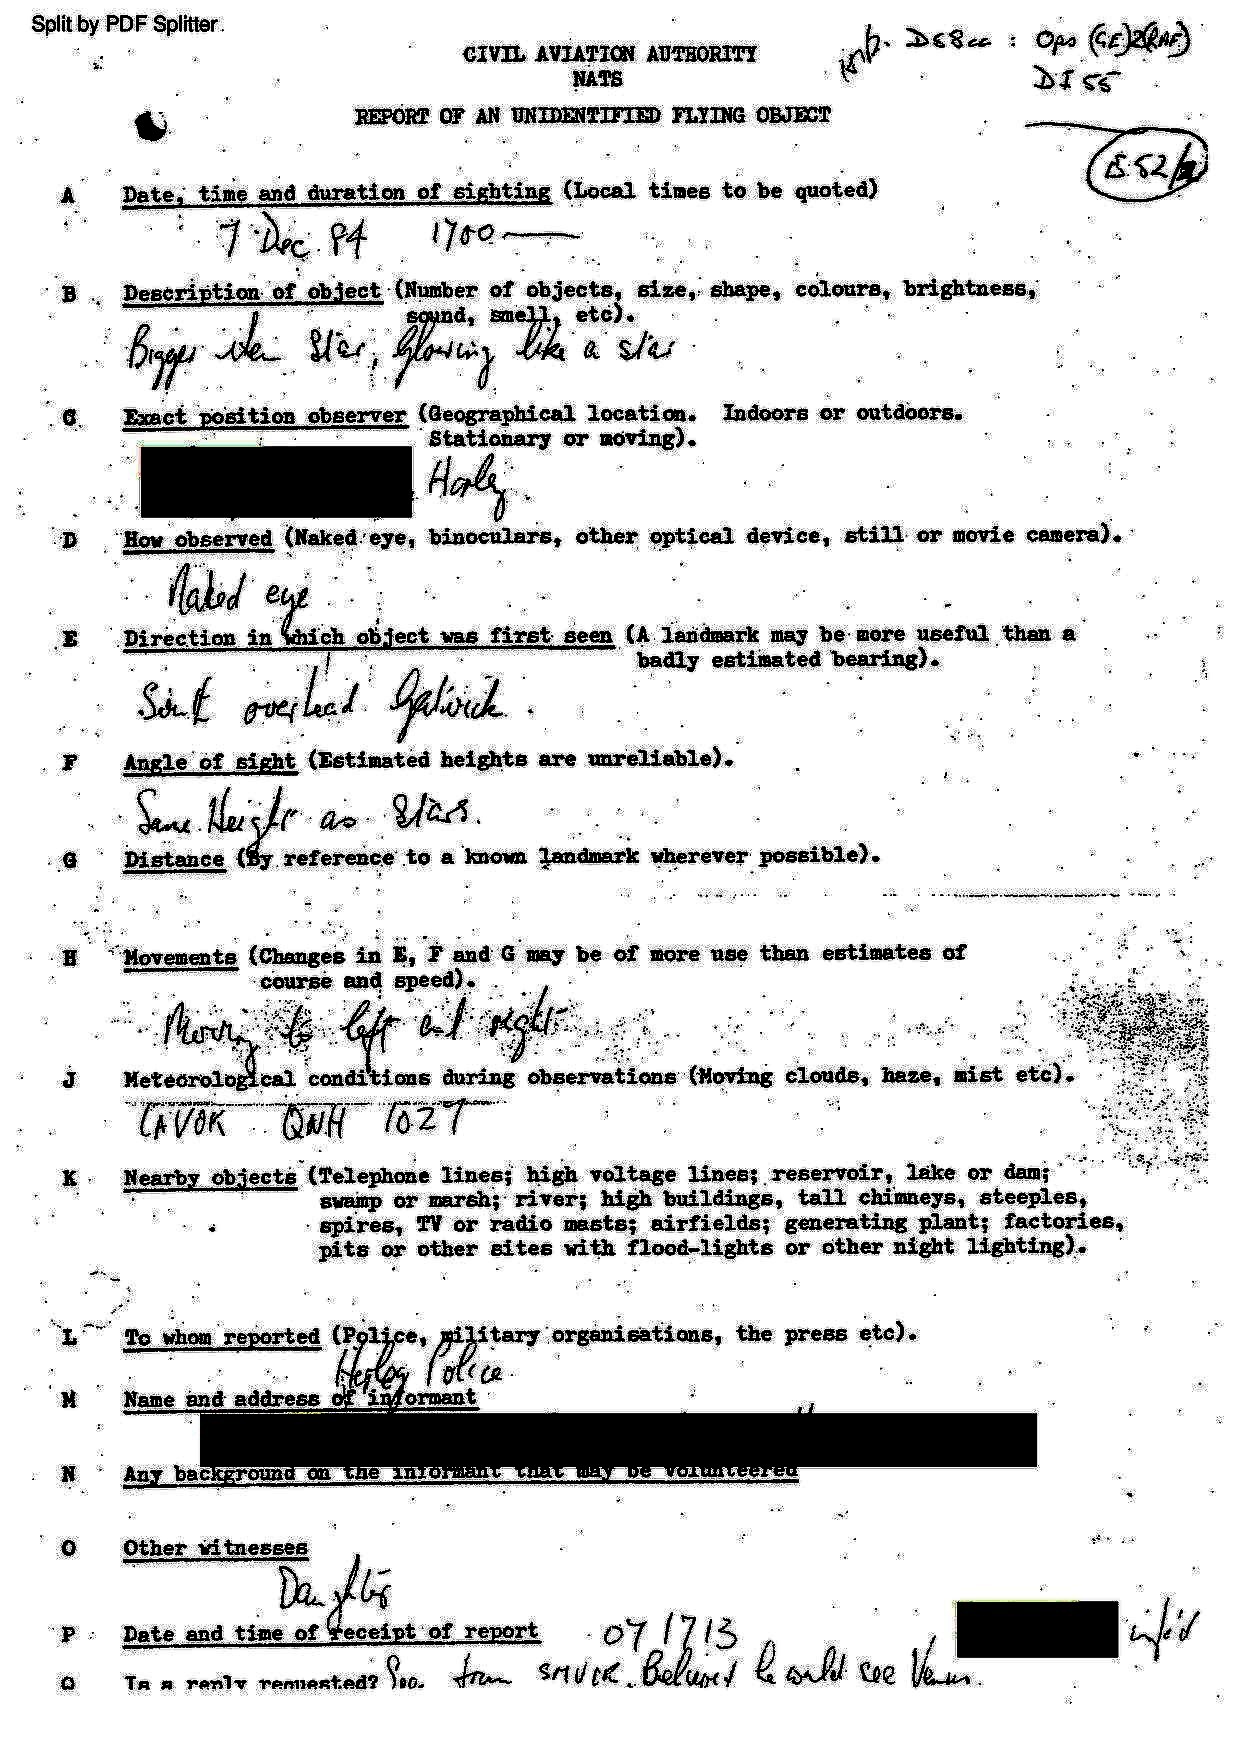 Split by PDF Splitter.
CIVIL AVIATION AUTHORITY
NATS
REPORT OF AN UNIDENTIFIED FLYING OBJECT
DS8 cc : Ops (GE)2(RAF)
DI 55
A Date, time and duration of sighting (Local times to be quoted)
7 Dec. 84 1700
B Description of object (Number of objects, size, shape, colours, brightness,
sound, smell, etc).
Bigger then Star, Glowing like a star
C Exact position observer (Geographical location. Indoors or outdoors.
Stationary or moving).
Horley
D How observed (Naked eye, binoculars, other optical device, still or movie camera).
Naked eye
E Direction in which object was first seen (A landmark may be more useful than a
badly estimated bearing).
overhead Gatwick.
F Angle of sight (Estimated heights are unreliable).
Same Height as Stars.
G Distance (By reference to a known landmark wherever possible).
H Movements (Changes in E, F and G may be of more use than estimates of
course and speed).
Moving to left and right
J Meteorological conditions during observations (Moving clouds, haze, mist etc).
CAVOK QNH 1027
K Nearby objects (Telephone lines; high voltage lines; reservoir, lake or dam;
swamp or marsh; river; high buildings, tall chimneys, steeples,
spires, TV or radio masts; airfields; generating plant; factories,
pits or other sites with flood-lights or other night lighting).
L To whom reported (Police, military organisations, the press etc).
Horley Police
M Name and address of informant
N Any background on the informant that may be volunteered
O Other witnesses
Daughter
P Date and time of receipt of report 071713
inf'd
Q Is a reply requested? from Believed he could see Venus.